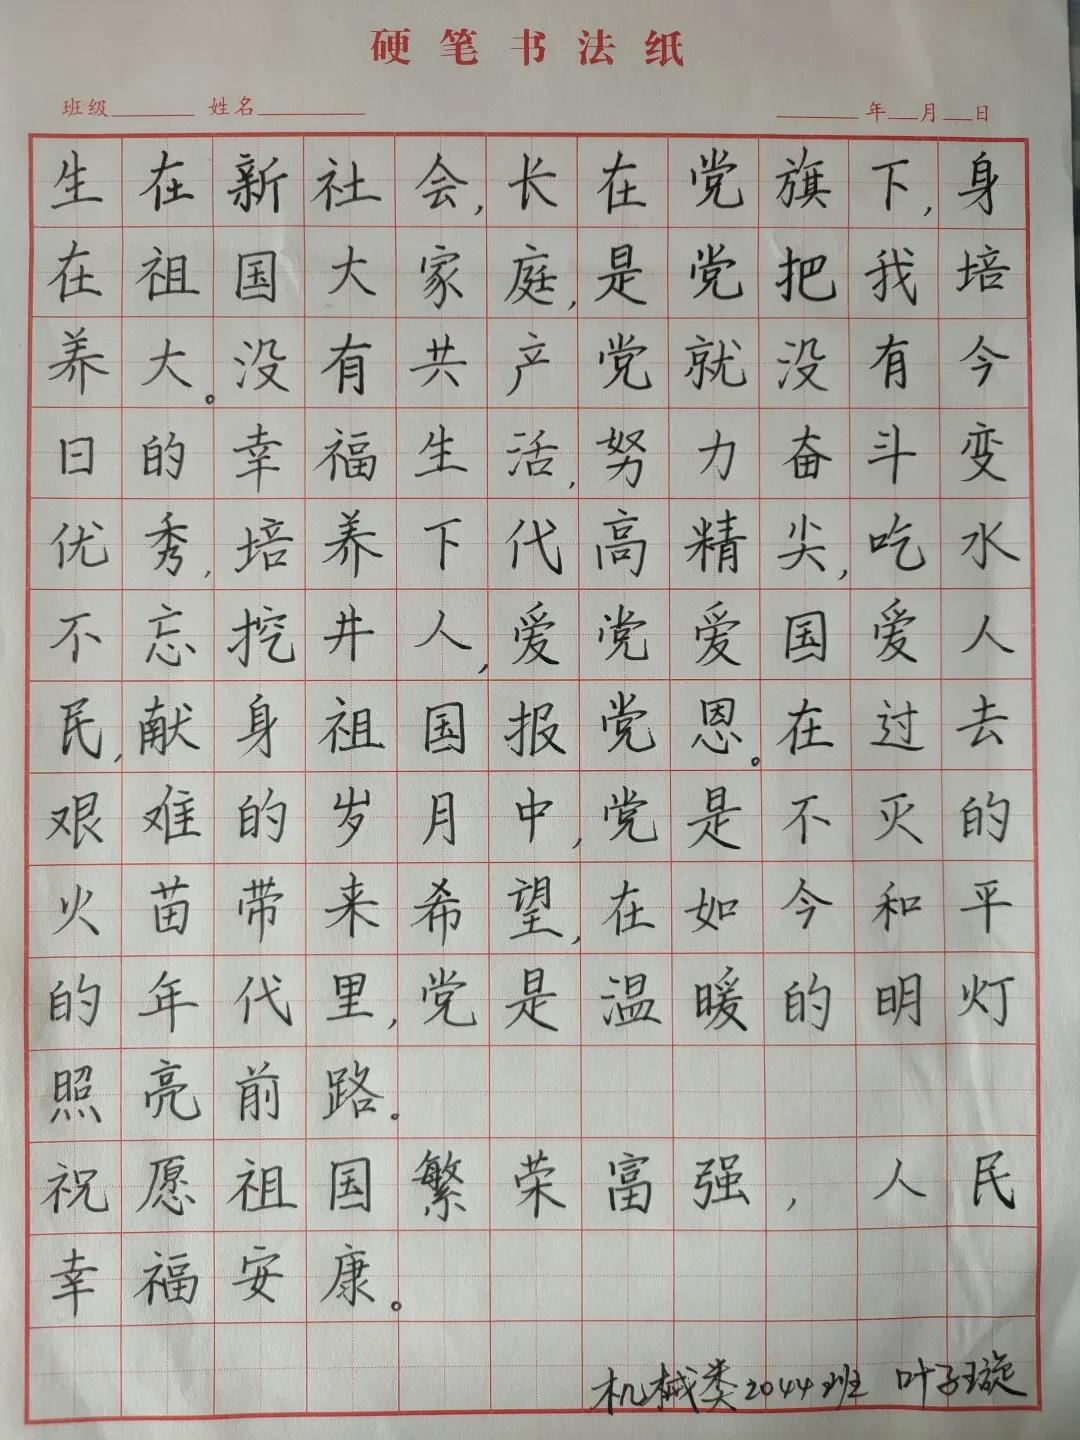 硬笔书法纸
班级 姓名 年 月 日
生在新社会,长在党旗下,身
在祖国大家庭,是党把我培
养大。没有共产党就没有今
日的幸福生活,努力奋斗变
优秀,培养下代高精尖,吃水
不忘挖井人,爱党爱国爱人
民,献身祖国报党恩。在过去
艰难的岁月中,党是不灭的
火苗带来希望,在如今和平
的年代里,党是温暖的明灯
照亮前路。
祝愿祖国繁荣富强,人民
幸福安康。
机械类2044班 叶子璇